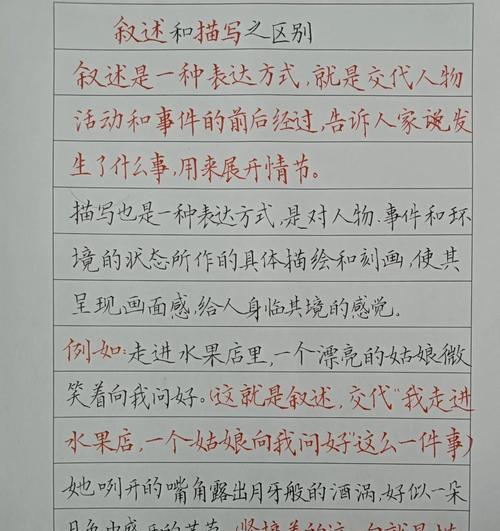 叙述和描写之区别
叙述是一种表达方式,就是交代人物
活动和事件的前后经过,告诉人家说发
生了什么事,用来展开情节。
描写也是一种表达方式,是对人物、事件和环
境的状态所作的具体描绘和刻画,使其
呈现画面感,给人身临其境的感觉。
例如:走进水果店里,一个漂亮的姑娘微
笑着向我问好。(这就是叙述,交代“我走进
水果店,一个姑娘向我问好”这么一件事)
她咧开的嘴角露出月牙般的酒涡,好似一朵